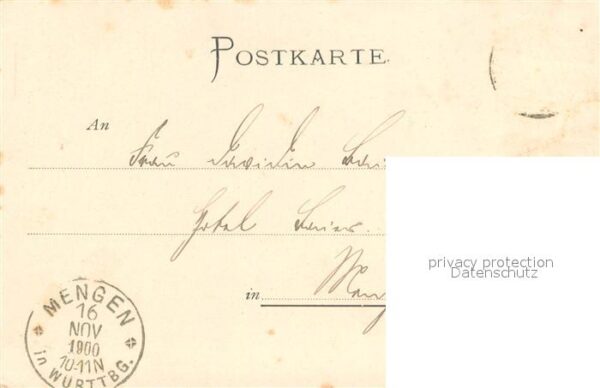 POSTKARTE
An
Frau
Hotel
privacy protection
Datenschutz
in
MENGEN
16
NOV
1900
10-11N
in WÜRTTBG.